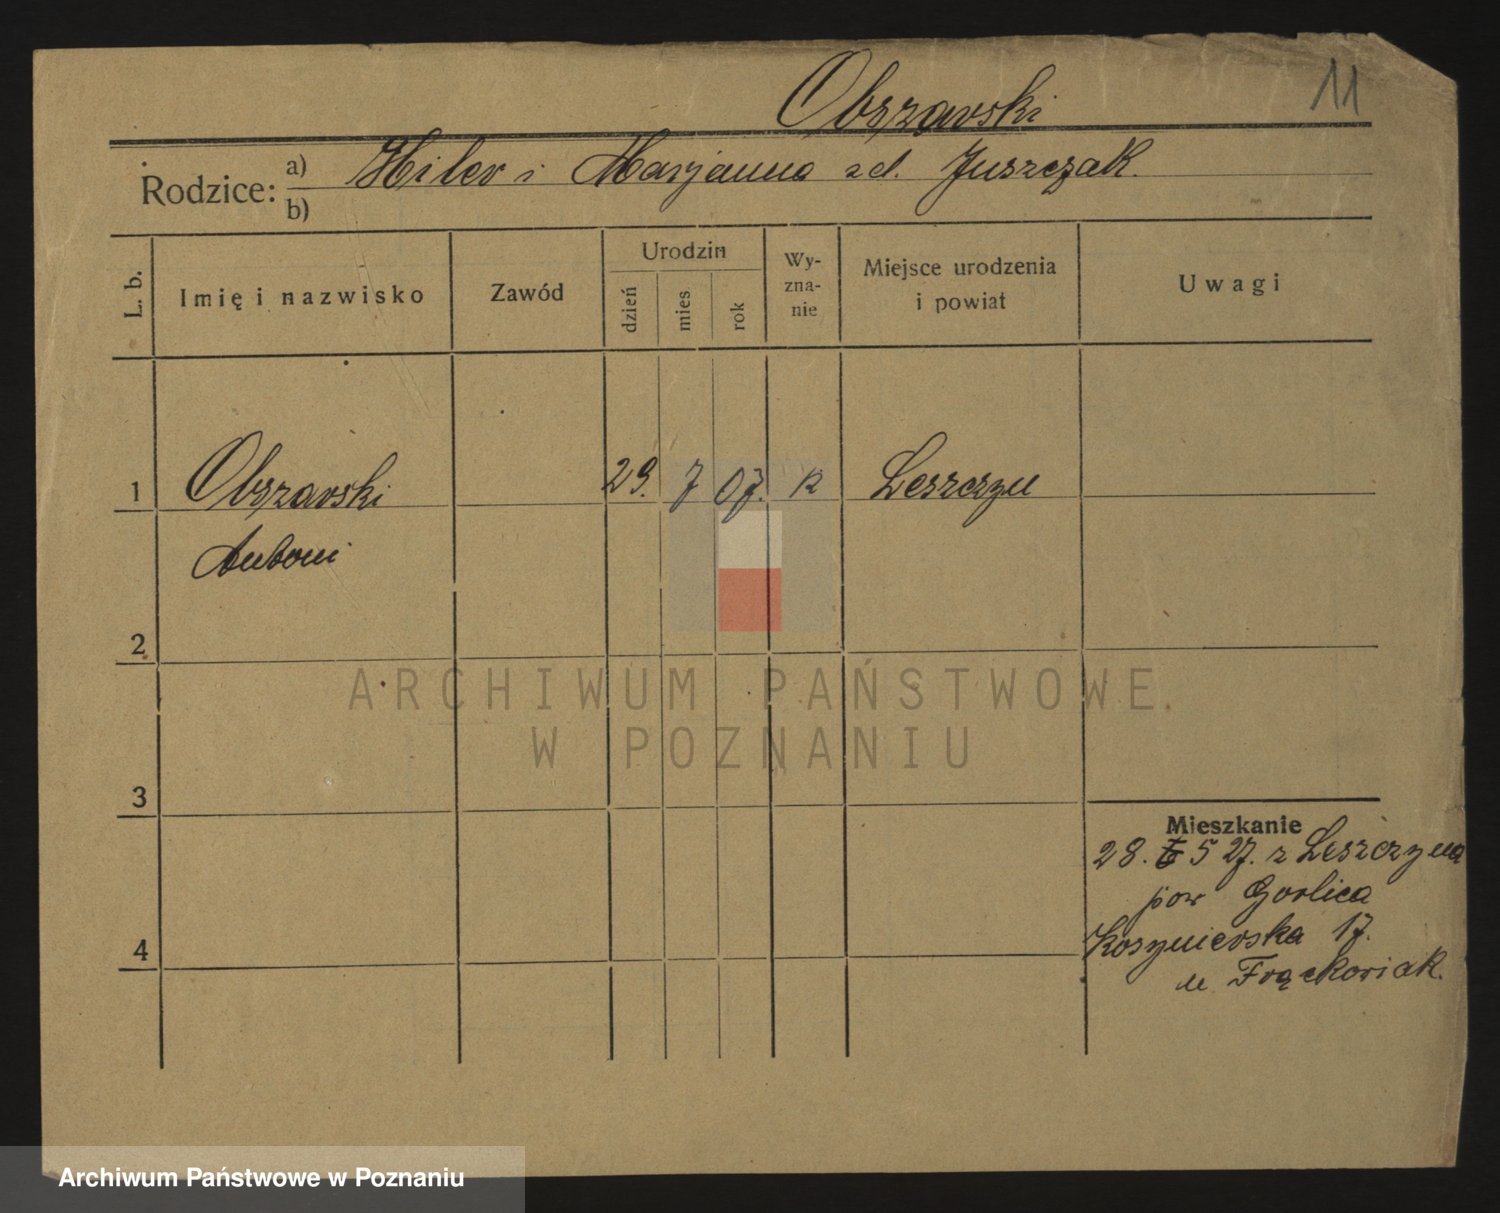 Obrzarski
11
Rodzice: a) Hiler i Marjanna zd. Juszczak.
b)
L. b.
Imię i nazwisko
Zawód
Urodzin
dzień
mies
rok
Wy-
zna-
nie
Miejsce urodzenia
i powiat
Uwagi
1 Obrzarski 29. 7 07. R Leszczyn
Antoni
2
3
4
Mieszkanie
28. 5 27. z Leszczyna
pow Gorlica
17.
u Frąckoriak.
ARCHIWUM PAŃSTWOWE
W POZNANIU
Archiwum Państwowe w Poznaniu